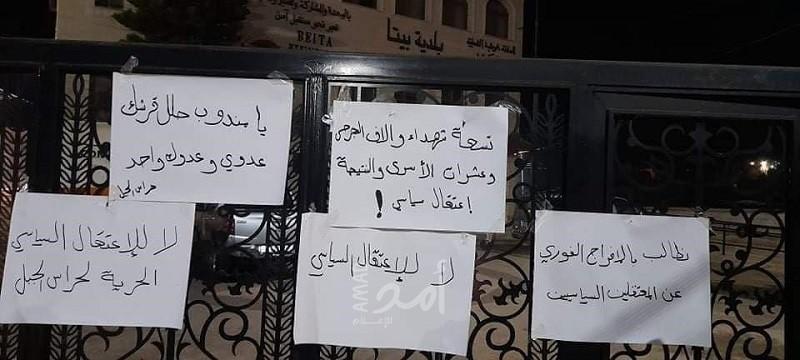 نحو مستقبل آمن
بلدية بيتا
BEITA
يا مندوب حلل قرشك
عدوي وعدوك واحد
حراس الجبل
تسعة شهداء وآلاف الجرحى
وعشرات الأسرى والنتيجة
إعتقال سياسي !
لا للإعتقال السياسي
الحرية لحراس الجبل
لا للإعتقال السياسي
نطالب بالإفراج الفوري
عن المعتقلين السياسيين
AMAD
أمد
للإعلام